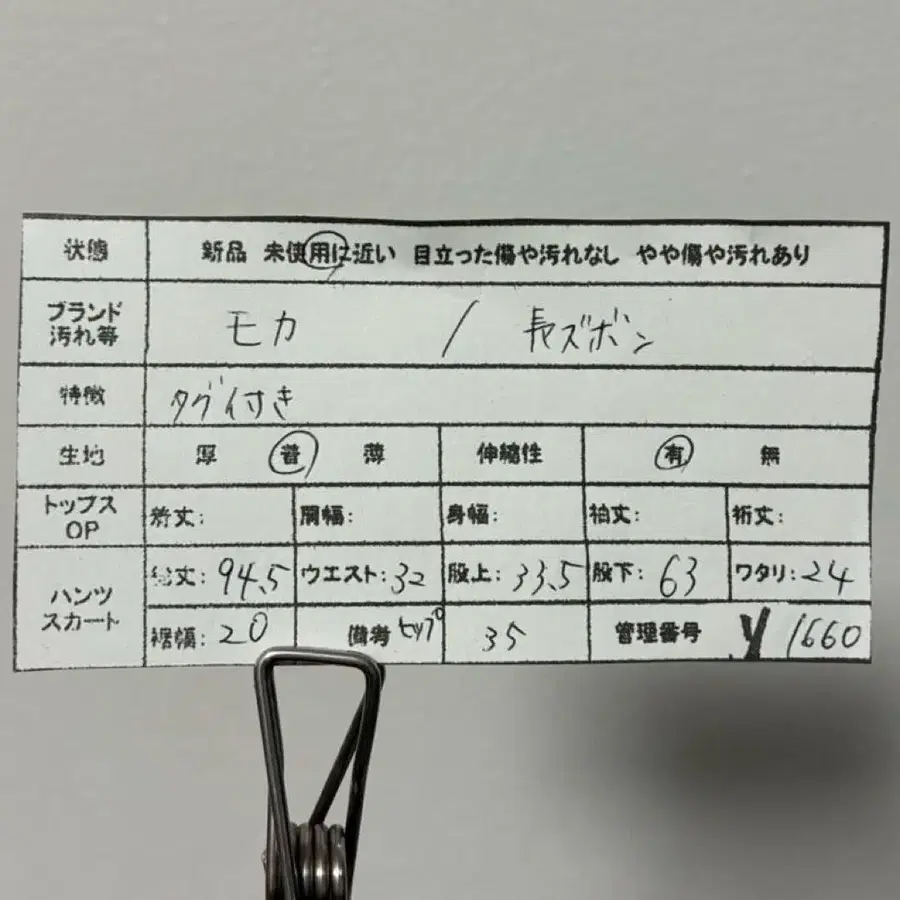 状態 新品 未使用に近い 目立った傷や汚れなし やや傷や汚れあり
ブランド
汚れ等
モカ / 長ズボン
特徴 タグ付き
生地 厚 普 薄 伸縮性 有 無
トップス
OP
着丈: 肩幅: 身幅: 袖丈: 裄丈:
パンツ
スカート
総丈: 94.5 ウエスト: 32 股上: 33.5 股下: 63 ワタリ: 24
裾幅: 20 備考 ヒップ 35 管理番号 y 1660